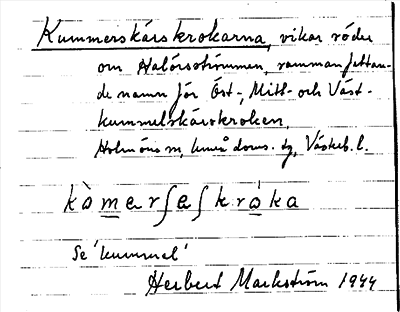 Kummerskärskrokarna, vikar söder
om Halörsströmmen, sammanfattan-
de namn för Öst-, Mitt- och Väst-
kummelskärskroken,
Holmöns sn, Umeå doms. tg, Västerb. l.
kòmerʃeʃkròka
Se 'kummel'
Herbert Markström 1944